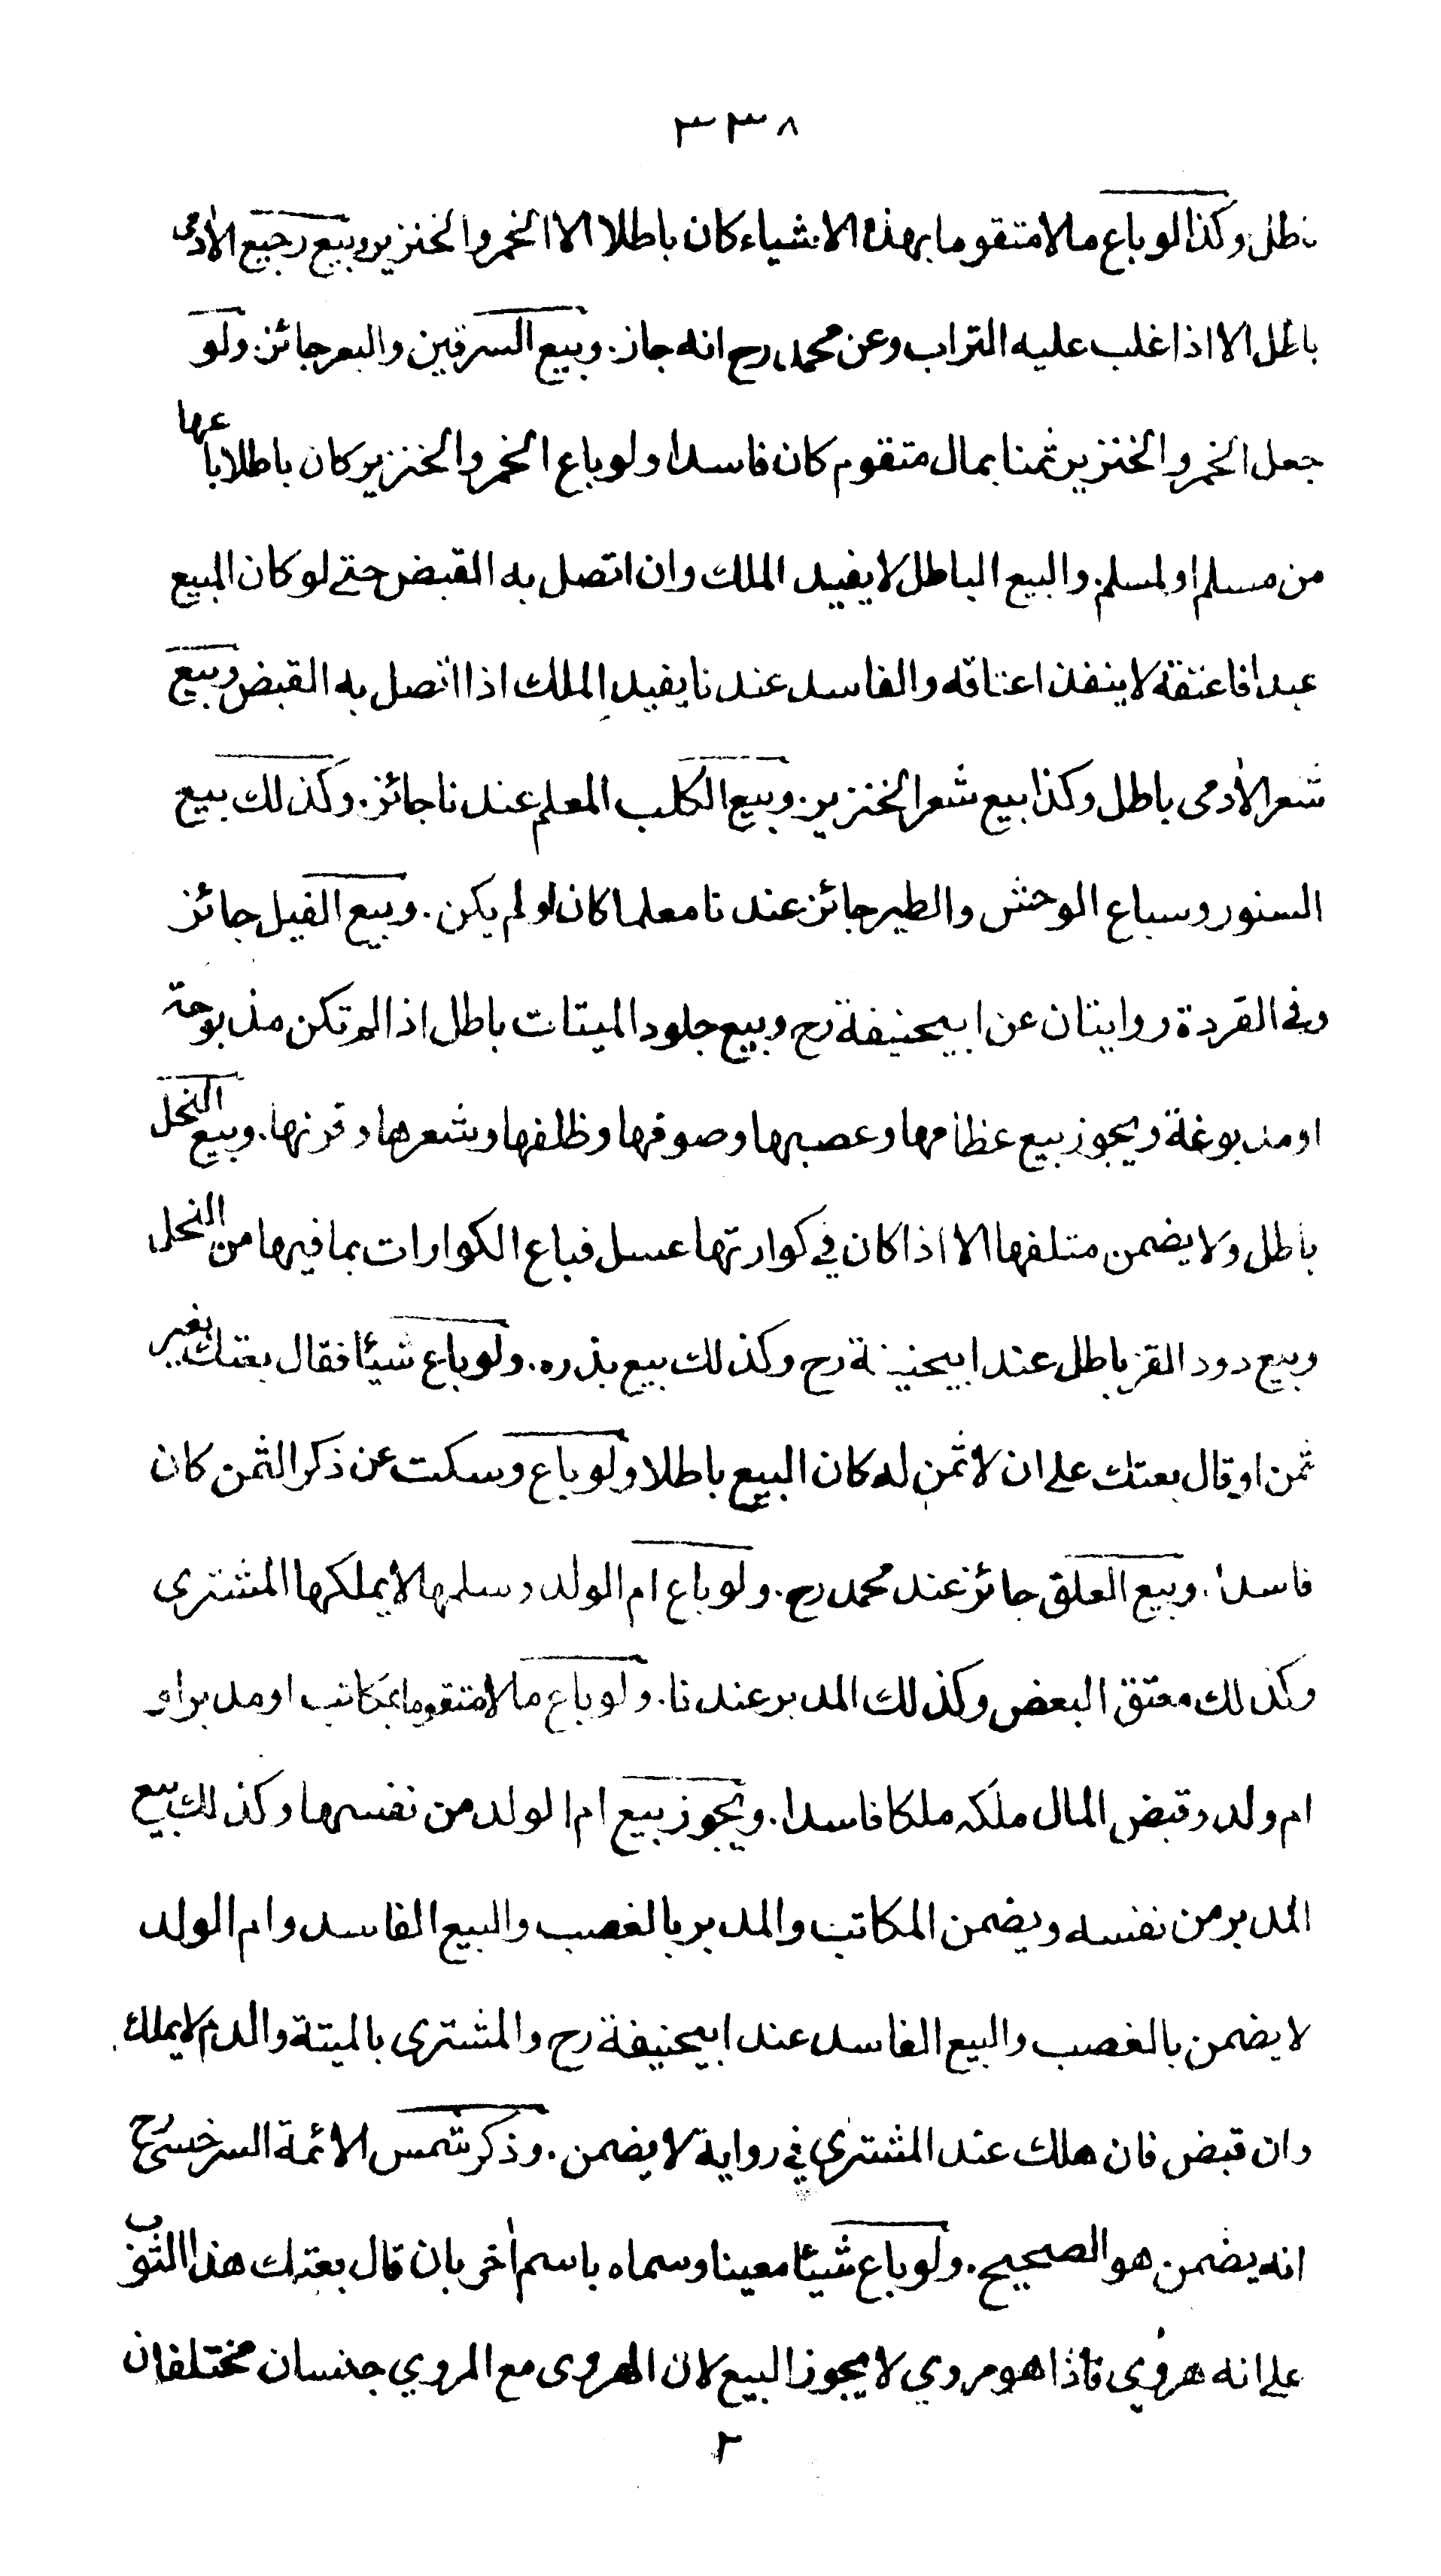 ٣٣٨
باطل وكذا لو باع مالا متقوما بهذه الاشياء كان باطلا الا الخمر والخنزير وبيع رجيع الآدمى
باطل الا اذا غلب عليه التراب وعن محمد رح انه جاز. وبيع السرقين والبعر جائز. ولو
جعل الخمر والخنزير ثمنا بمال متقوم كان فاسدا ولو باع الخمر والخنزير كان باطلا باعها
من مسلم او لمسلم. والبيع الباطل لا يفيد الملك وان اتصل به القبض حتے لو كان المبيع
عبدا فاعتقة لا ينفذ اعتاقه والفاسد عندنا يفيد الملك اذا اتصل به القبض وبيع
شعر الآدمى باطل وكذا بيع شعر الخنزير. وبيع الكلب المعلم عندنا جائز. وكذلك بيع
السنور وسباع الوحش والطير جائز عندنا معلما كان او لم يكن. وبيع الفيل جائز
وفے القردة روايتان عن ابيحنيفة رح وبيع جلود الميتات باطل اذا لم تكن مذبوحة
او مدبوغة ويجوز بيع عظامها وعصبها وصوفها وظلفها وشعرها وقرنها. وبيع النحل
باطل ولا يضمن متلفها الا اذا كان فے كوارتها عسل فباع الكوارات بما فيها من النحل
وبيع دود القز باطل عند ابيحنيفة رح وكذلك بيع بذره. ولو باع شيئا فقال بعتك بغير
ثمن او قال بعتك علے ان لا ثمن له كان البيع باطلا ولو باع وسكت عن ذكر الثمن كان
فاسدا. وبيع العلق جائز عند محمد رح. ولو باع ام الولد وسلمها لا يملكها المشترى
وكذلك معتق البعض وكذلك المدبر عندنا. ولو باع مالا متقوما بمكاتب او مدبر او
ام ولد وقبض المال ملكه ملكا فاسدا. ويجوز بيع ام الولد من نفسها وكذلك بيع
المدبر من نفسه ويضمن المكاتب والمدبر بالغصب والبيع الفاسد وام الولد
لا يضمن بالغصب والبيع الفاسد عند ابيحنيفة رح والمشترى بالميتة والدم لا يملك
وان قبض فان هلك عند المشتري فے رواية لا يضمن. وذكر شمس الائمة السرخسے رح
انه يضمن هو الصحيح. ولو باع شيئا معينا وسماه باسم آخر بان قال بعتك هذا الثوب
علے انه هروي فاذا هو مروي لا يجوز البيع لان الهروى مع المروي جنسان مختلفان
٢